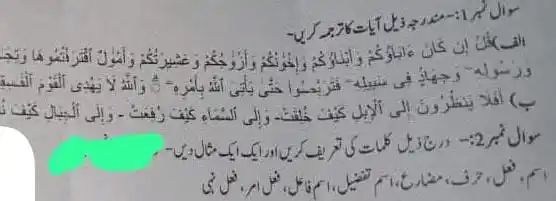 سوال نمبر 1:- مندرجہ ذیل آیات کا ترجمہ کریں-
الف) قُلْ إِن كَانَ ءَابَاؤُكُمْ وَأَبْنَاؤُكُمْ وَإِخْوَٰنُكُمْ وَأَزْوَٰجُكُمْ وَعَشِيرَتُكُمْ وَأَمْوَٰلٌ ٱقْتَرَفْتُمُوهَا
وَرَسُولِهِ وَجِهَادٍ فِى سَبِيلِهِ فَتَرَبَّصُوا حَتَّىٰ يَأْتِىَ ٱللَّهُ بِأَمْرِهِ وَٱللَّهُ لَا يَهْدِى ٱلْقَوْمَ
ب) أَفَلَا يَنظُرُونَ إِلَى ٱلْإِبِلِ كَيْفَ خُلِقَتْ- وَإِلَى ٱلسَّمَاءِ كَيْفَ رُفِعَتْ - وَإِلَى ٱلْجِبَالِ كَيْفَ
سوال نمبر 2:- درج ذیل کلمات کی تعریف کریں اور ایک ایک مثال دیں-
اسم، فعل، حرف، مضارع، اسم تفضیل، اسم فاعل، فعل امر، فعل نہی